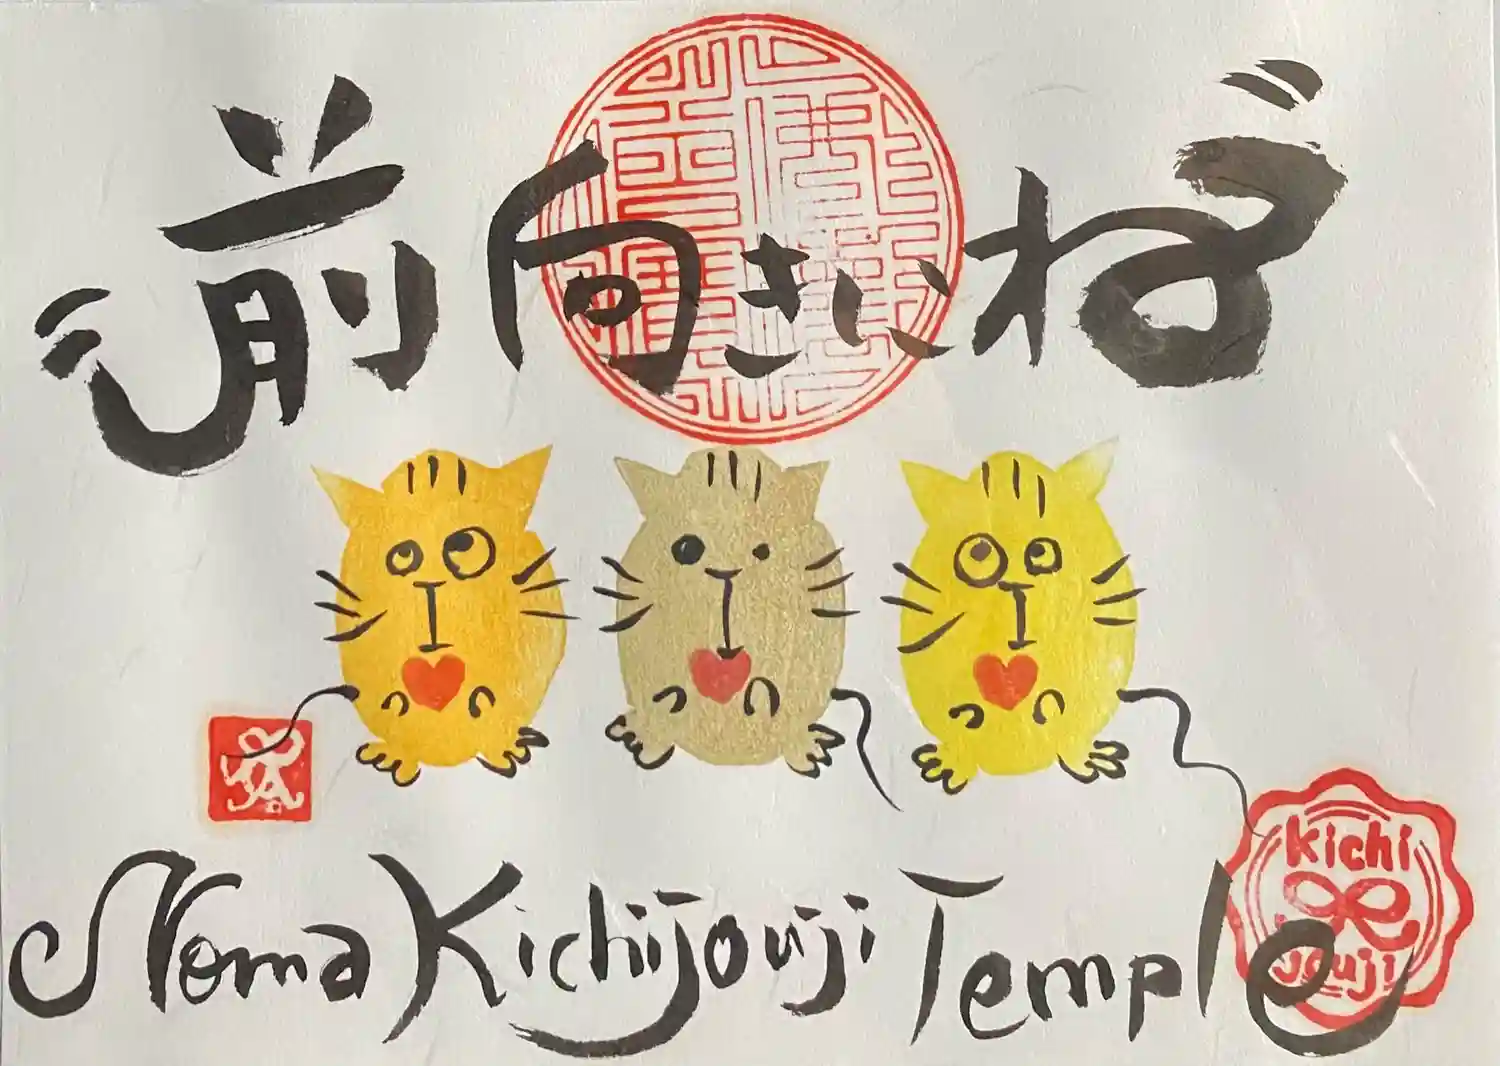 前向きにね
Noma Kichijouji Temple
Kichi
jouji